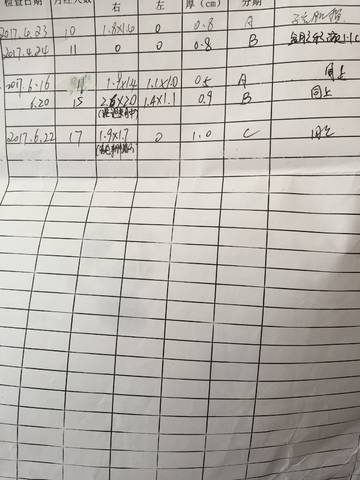 检查日期 月经天数 右 左 厚(cm) 分期
2017.4.23 10 1.8×1.6 0 0.8 A
2017.4.24 11 0 0 0.8 B
2017.6.16 11 1.7×1.4 1.1×1.0 0.5 A 同上
6.20 15 2.6×2.0 1.4×1.1 0.9 B 同上
2017.6.22 17 1.9×1.7 0 1.0 C 同上